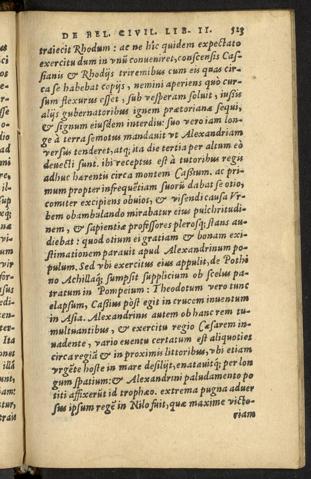 DE BEL. CIVIL. LIB. II. 523
traiecit Rhodum: ac ne hîc quidem expectato
exercitu dum in vnũ conueniret, conscensis Cas-
sianis & Rhodijs triremibus cum eis quas cir-
ca se habebat copijs, nemini aperiens quò cur-
sum flexurus esset, sub vesperam soluit, iussis
alijs gubernatoribus ignem prætorianæ sequi,
& signum eiusdem interdiu: suo vero iam lon-
ge à terra semotus mandauit vt Alexandriam
versus tenderet, atq; ita die tertia per altum eò
deuecti sunt. ibi receptus est à tutoribus regis
adhuc hærentis circa montem Casium. ac pri-
mum propter infrequẽtiam suorũ dabat se otio,
comiter excipiens obuios, & visendi causa Vr-
bem obambulando mirabatur eius pulchritudi-
nem, & sapientiæ professores plerosq; stans au-
diebat: quod otium ei gratiam & bonam exi-
stimationem parauit apud Alexandrinum po-
pulum. Sed vbi exercitus eius appulit, de Pothi
no Achillaq; sumpsit supplicium ob scelus pa-
tratum in Pompeium: Theodotum vero tunc
elapsum, Cassius pòst egit in crucem inuentum
in Asia. Alexandrinis autem ob hanc rem tu-
multuantibus, & exercitu regio Cæsarem in-
uadente, vario euentu certatum est aliquoties
circa regiã & in proximis littoribus, vbi etiam
vrgẽte hoste in mare desilijt, enatauitq; per lon
gum spatium: & Alexandrini paludamento po
titi affixerũt id trophæo. extrema pugna aduer
sus ipsum regẽ in Nilo fuit, quæ maxime victo-
riam